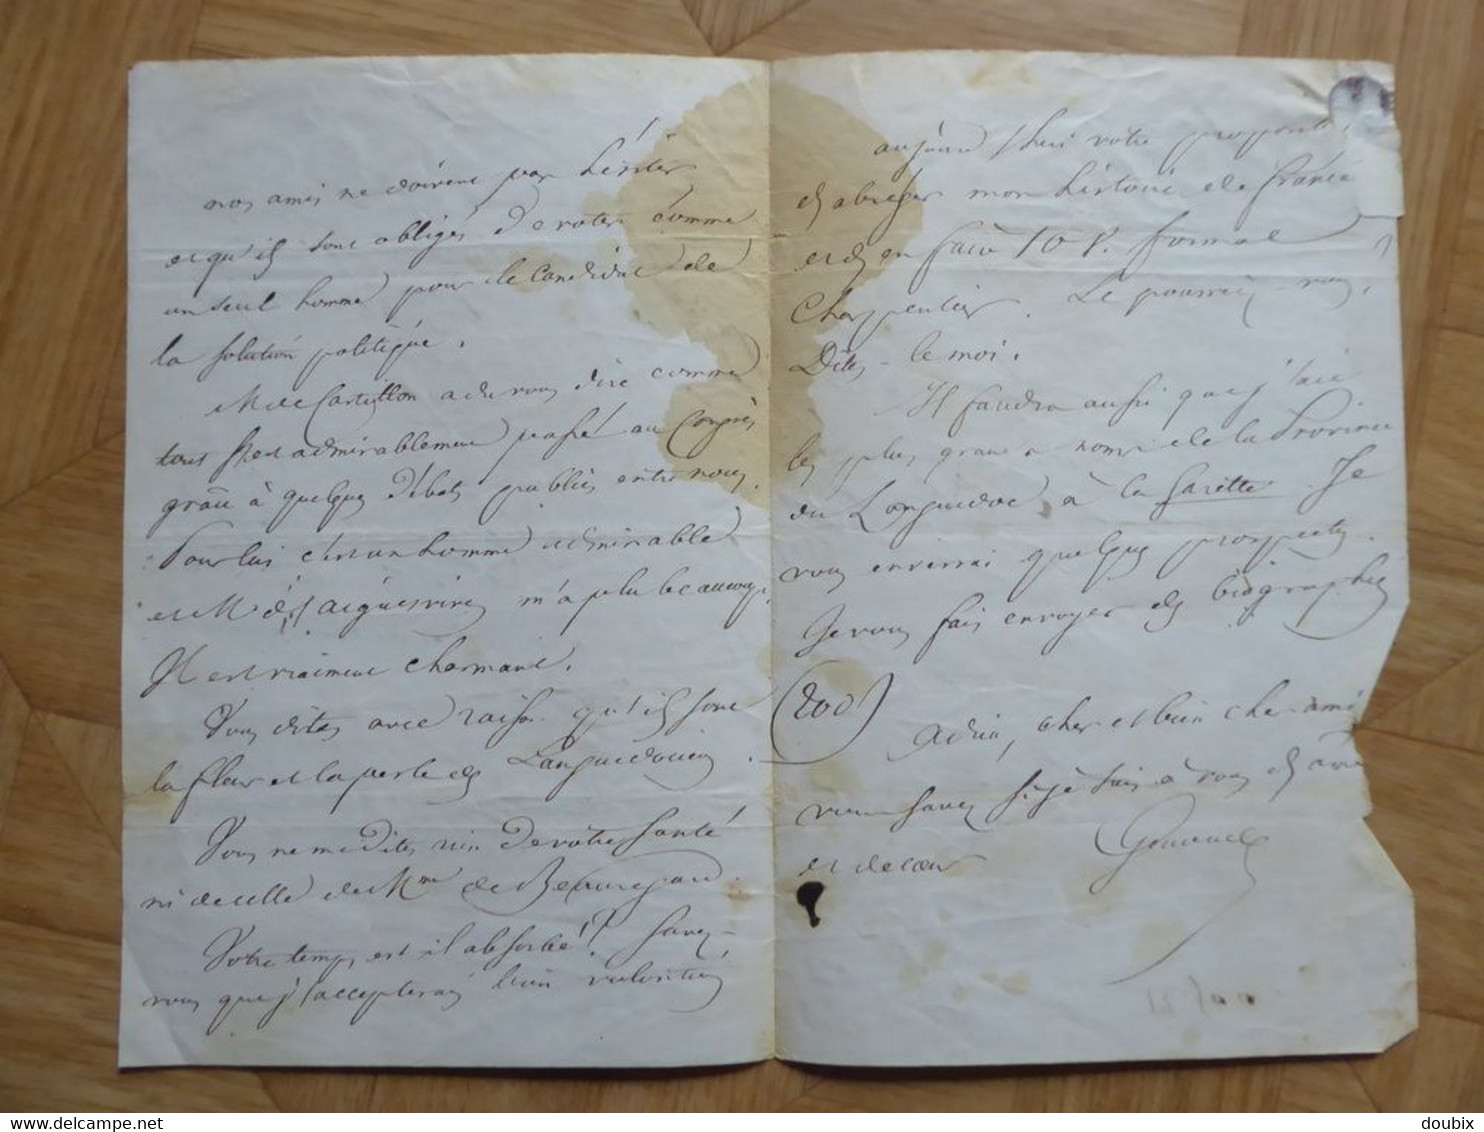 nos amis ne doivent pas hésiter
et qu'ils sont obligés de voter comme
un seul homme pour le candidat de
la solution politique.
M de Castillon a du vous dire comme
tout s'est admirablement passé au Congrès
grâce à quelques débats publiés entre nous.
Pour lui c'est un homme admirable
et M d'Aiguesvives m'a plu beaucoup,
Il est vraiment charmant.
Vous dites avec raison qu'ils sont
la fleur et la perle des Languedociens.
Vous ne me dites rien de votre santé
ni de celle de Mme de Beauregard.
Votre temps est-il absorbé? Savez-
vous que j'accepterais bien volontiers
aujourd'hui votre proposition
d'abréger mon histoire de France
et d'en faire 10 V. format
Charpentier. Le pourriez-vous,
Dites-le moi.
Il faudra aussi que j'aie
les plus grands noms de la Province
du Languedoc à la Gazette. Je
vous enverrai quelques prospectus.
Je vous fais envoyer des biographies
(200)
Adieu, cher et bien cher ami
vous savez si je suis à vous d'âme
et de cœur
Genoude
delcampe.net
doubix